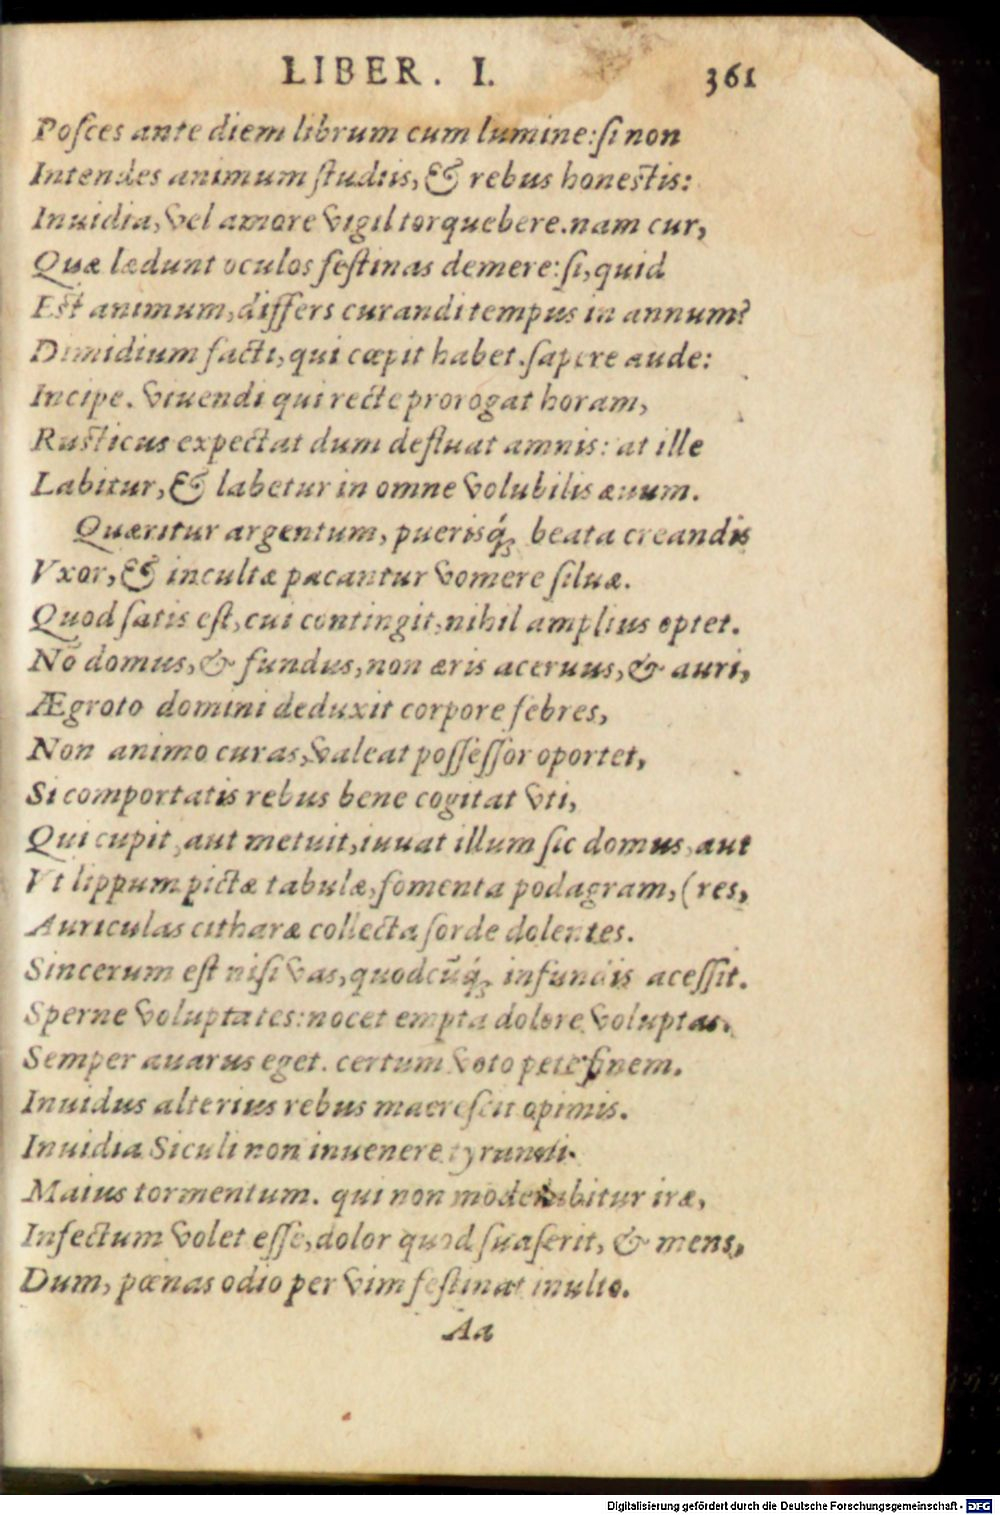 LIBER. I. 361
Poſces ante diem librum cum lumine: ſi non
Intendes animum ſtudiis, & rebus honeſtis:
Inuidia, vel amore vigil torquebere. nam cur,
Quæ lædunt oculos feſtinas demere: ſi, quid
Eſt animum, differs curandi tempus in annum?
Dimidium facti, qui cœpit habet. ſapere aude:
Incipe. viuendi qui recte prorogat horam,
Ruſticus expectat dum defluat amnis: at ille
Labitur, & labetur in omne volubilis æuum.
Quæritur argentum, puerisq́; beata creandis
Vxor, & incultæ pacantur vomere ſiluæ.
Quod ſatis eſt, cui contingit, nihil amplius optet.
Nō domus, & fundus, non æris aceruus, & auri,
Ægroto domini deduxit corpore febres,
Non animo curas, valeat poſſeſſor oportet,
Si comportatis rebus bene cogitat vti,
Qui cupit, aut metuit, iuuat illum ſic domus, aut
Vt lippum pictæ tabulæ, fomenta podagram, (res,
Auriculas citharæ collecta ſorde dolentes.
Sincerum eſt niſi vas, quodcūq́; infundis aceſſit.
Sperne voluptates: nocet empta dolore voluptas.
Semper auarus eget. certum voto pete finem.
Inuidus alterius rebus macreſcit opimis.
Inuidia Siculi non inuenere tyranni
Maius tormentum. qui non moderabitur iræ,
Infectum volet eſſe, dolor quod ſuaſerit, & mens,
Dum, pœnas odio per vim feſtinat inulto.
Aa
Digitalisierung gefördert durch die Deutsche Forschungsgemeinschaft - DFG